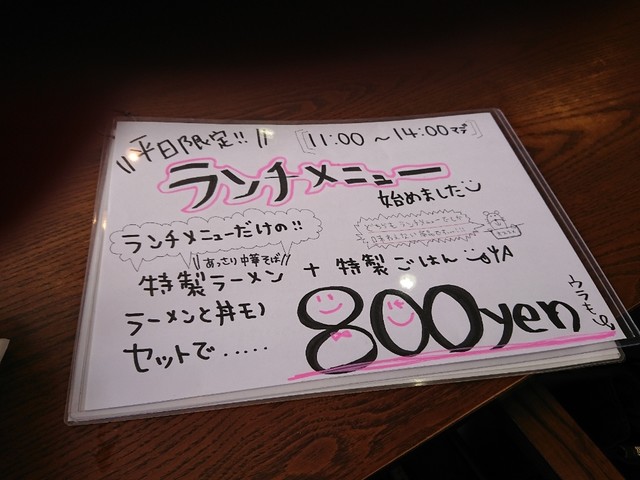 平日限定!!
[11:00～14:00マデ]
ランチメニュー
始めました
ランチメニューだけの!!
あっさり中華そば
特製ラーメン + 特製ごはん
ラーメンと丼モノ
セットで‥‥‥
800yen
ウラモ